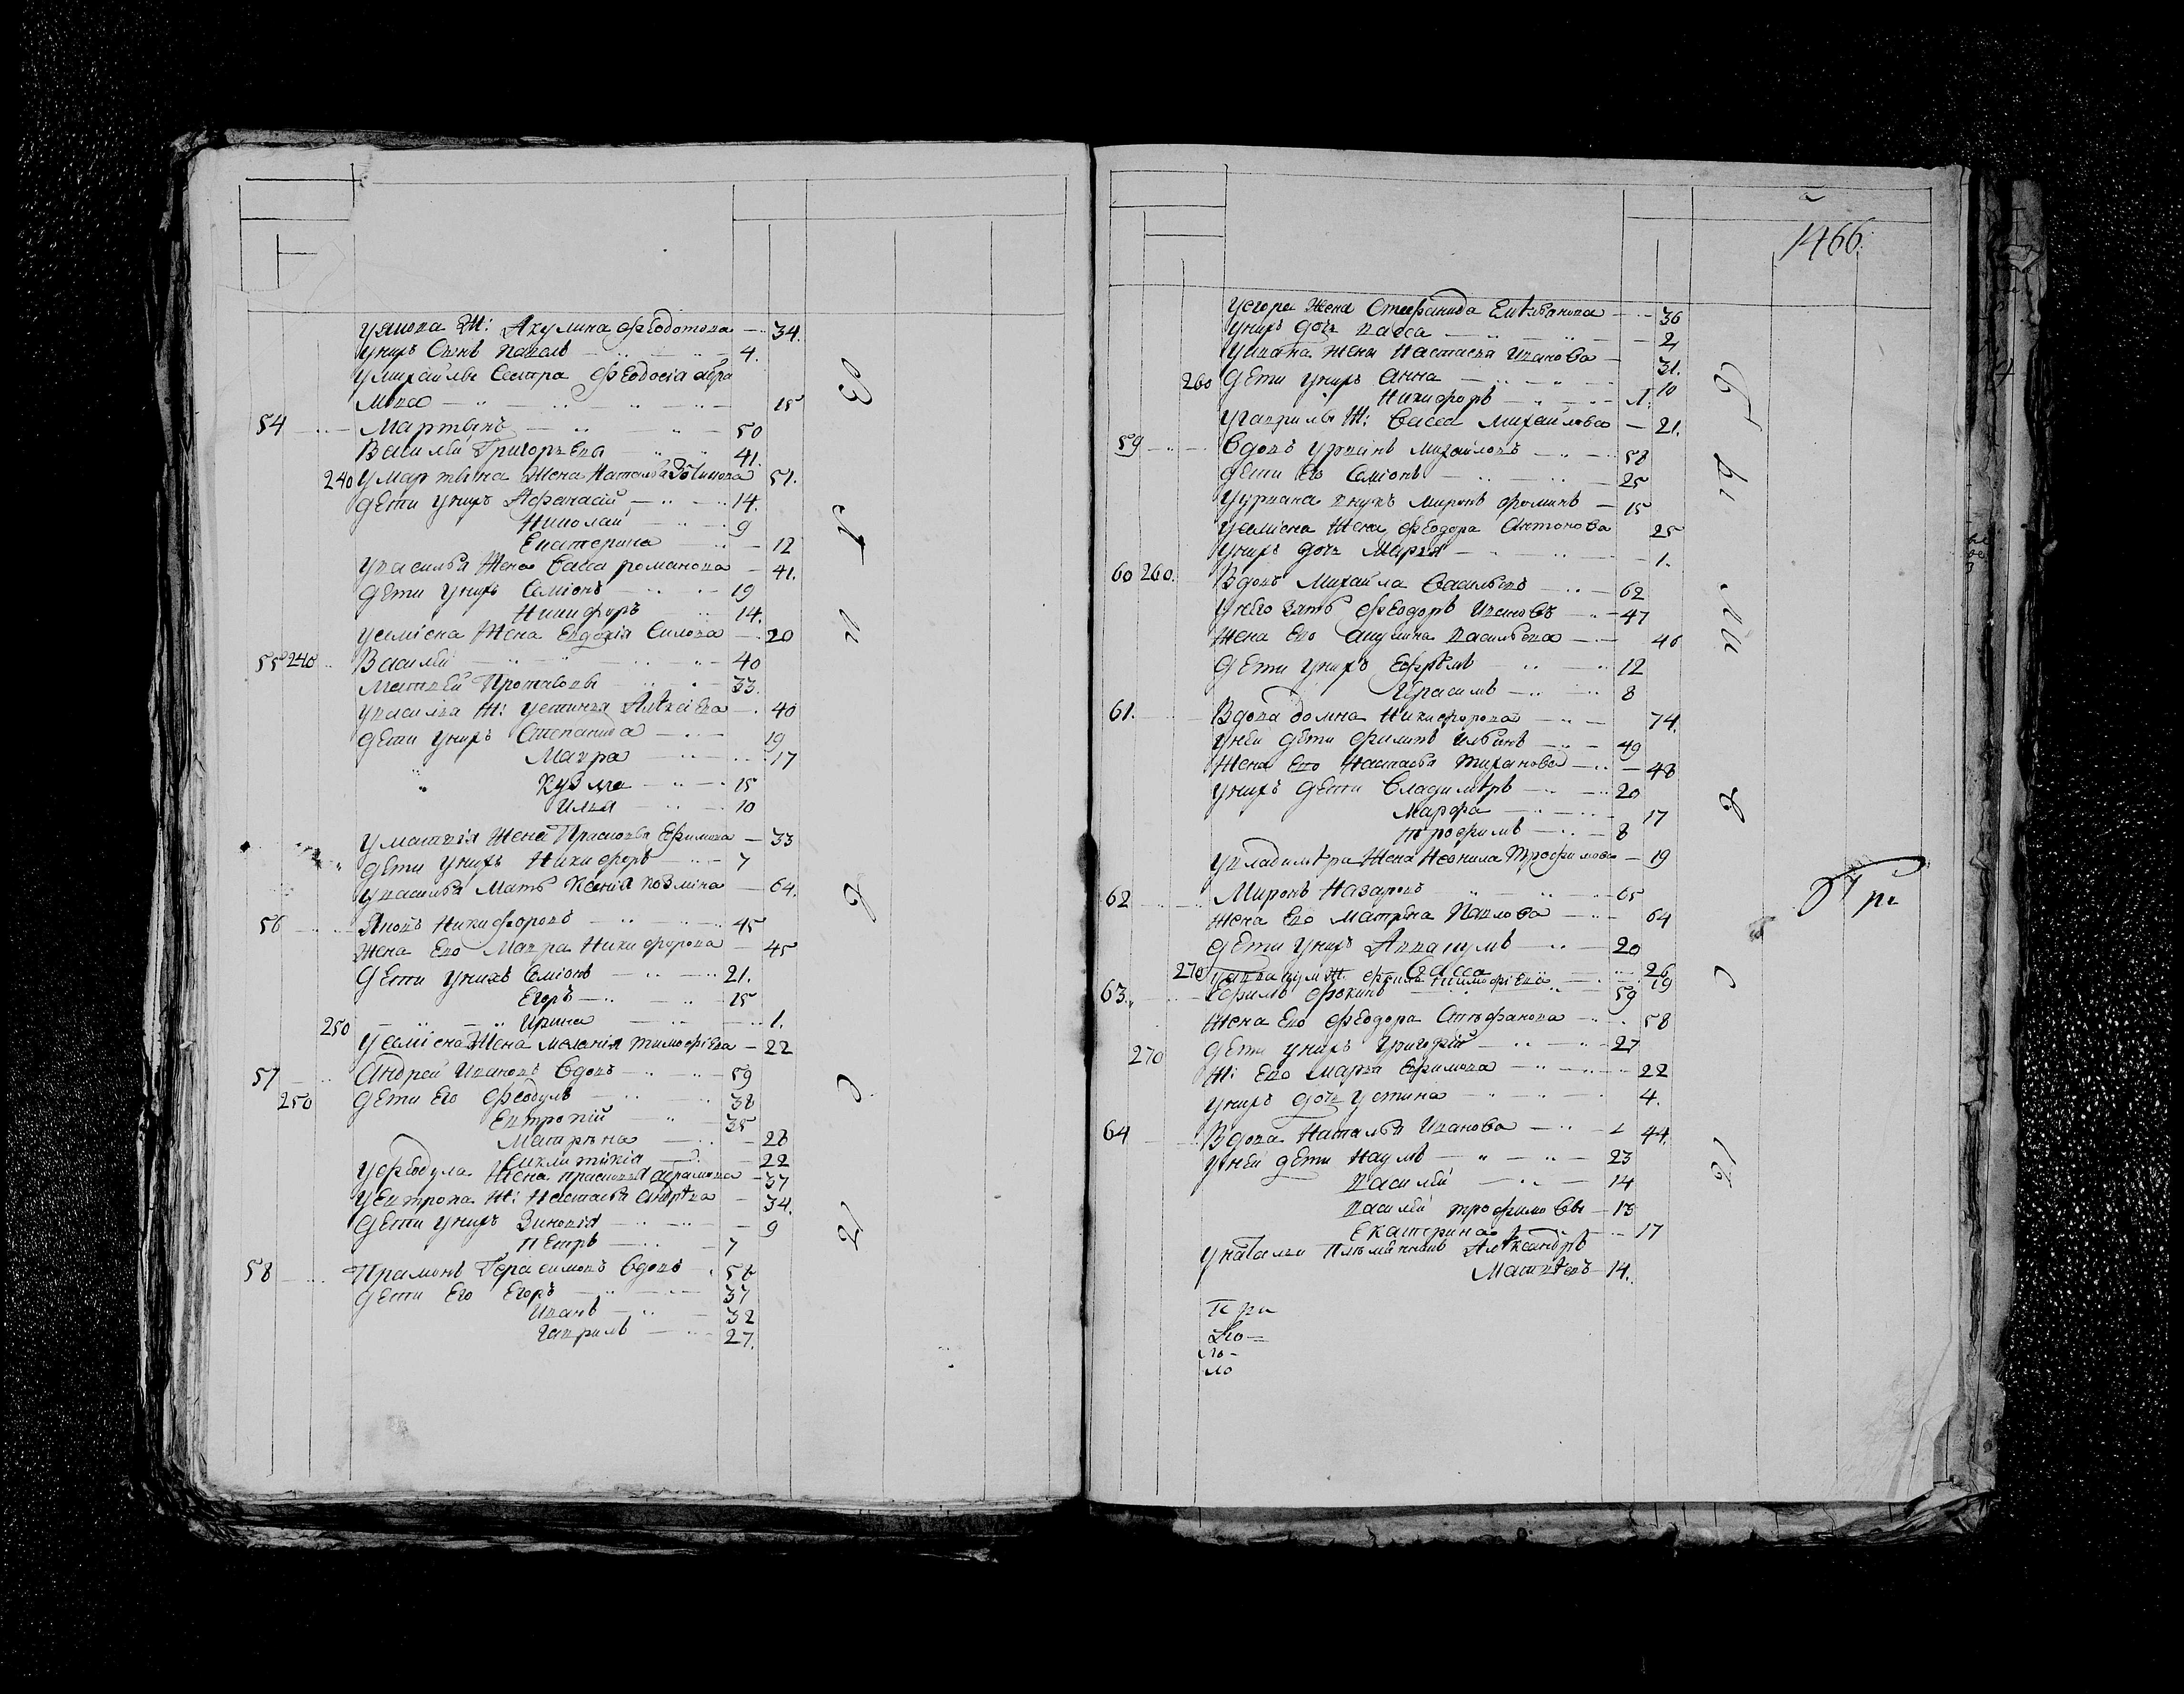 уякова Ж: Акулина Федотова — 34.
униχъ Сынъ Павелъ — 4.
умихайлы Сестра Феодосіа абра
мова — 15
54 — Мартынъ — 50
Василей Григорьевы 41.
240 умартына Жена Наталья 51.
дети униχъ Афанасій — 14.
Николай — 9
Екатерина — 12
увасилья Жена Васса романова — 41.
дети униχъ Семіонъ — 19
Никифоръ 14.
усеміона Жена Евдокія Силова — 20
55 240 Василей — 40
Матвей 33.
увасилья Ж: устинья Алексіева — 40
дети униχъ Степанида — 19
Мавра — 17
Кузма — 15
Илья — 10
уматвія Жена Прасковья Ефимова — 33
дети униχъ Никифоръ — 7
увасилья Мать Ксенія козмина — 64.
56 Яковъ Никифоровъ — 45
Жена Ево Мавра Никифорова — 45
дети униχъ Семіонъ — 21.
Егоръ — 15
250 Ирина — 1.
усеміона Жена меланія тимофіева — 22
57 Андрей Ивановъ вдовъ — 59
250 дети Его Феодулъ 38
Евтропій 35
Матрена — 28
Синклитикіа — 22
уфеодула Жена прасковья абрамова — 37
уевтропа Ж: Настасья андрѣва — 34.
дети униχъ Зиновія — 9
петръ — 7
58 Парамонъ Герасимовъ вдовъ 58
дети Его Егоръ — 37
Иванъ — 32
Гаврилъ — 27.
1466.
уегора Жена Стефанида 36
униχъ дочь васса — 2
уивана Жена Настасья иванова — 31.
260 дети униχъ анна — 10
Никифоръ — 1.
угаврилы Ж: Васса михайлова — 21.
59 Вдовъ Михайловъ — 58
дети Его Семіонъ — 25
внукъ миронъ фоминъ — 15
усеміона Жена Феодора антонова 25
униχъ дочь Марья — 1.
60 260. Вдовъ Михайла Васильевъ — 62
унего зять Феодоръ Ивановъ — 47
Жена Ево акулина васильева — 46
дети униχъ Ефремъ — 12
Герасимъ — 8
61. Вдова домна Никифорова — 74.
уней дети филипъ ильинъ — 49
Жена Ево Настасья — 48
униχъ дети Владимѣръ — 20
Марфа — 17
трофимъ — 8
увладимѣра Жена Неонила Трофимова — 19
62 Миронъ Назаровъ — 65
Жена Ево матрена Павлова — 64
дети униχъ Аввакумъ — 20
270 Васса — 26
уаввакума Ж: тимофіева — 19
63. Ефимъ фокинъ — 59
Жена Ево феодора Стефанова — 58
270 дети униχъ Григорій — 27
Ж: Ево Марья Ефимова — 22
униχъ дочь устина — 4.
64 Вдова Наталья Иванова — 44.
уней дети Наумъ — 23
василей — 14
василей трофимовы — 13
Екатерина — 17
унатальи племянникъ Алѣксандръ
Матвѣевъ — 14.